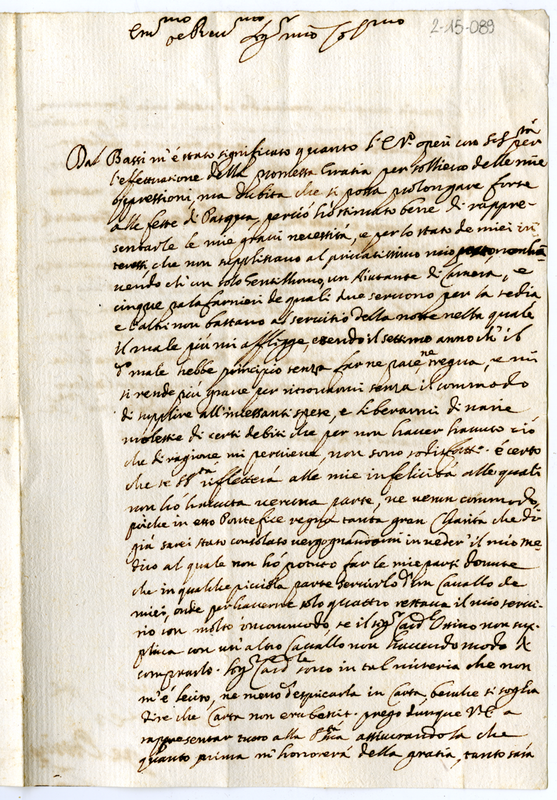 Em.mo
e Rev.mo Sig.r mio Col.mo
2-15-089
Dal Bassi m'è stato significato quanto V. E. operi con S. S.tà per
l'effettuatione della promessa Gratia per sollievo delle mie
oppressioni, ma dubita che si possa prolongare forse
alle feste di Pasqua, perciò hò stimato bene di rappre-
sentarle le mie gravi necessità, e per lo stato de miei in-
teressi, che non suppliscano al privatissimo mio
nendo ch'un solo Gentilhuomo, un Aiutante di Camera, e
cinque palafranieri de quali due servono per la sedia
e l'altri non bastano al servitio della notte nella quale
il male più mi affligge, essendo il settimo anno ch'il
d.o male hebbe principio senza farne pace ne tregua, e mi
si rende più grave per ritrovarmi senza il commodo
di supplire all'incessanti spese, e liberarmi di varie
molestie di certi debiti che per non haver havuto ciò
che di ragione mi perviene, non sono sodisfatti. è certo
che se S. S.tà rifletterà alle mie infelicità alle quali
non hò havuta veruna parte, ne verun commodo,
poiche in esso Pontefice regna tanta gran Charità che di
già sarei stato consolato vergognandomi in veder' il mio me-
dico al quale non hò potuto far le mie parti dovute
che in qualche picciola parte servirlo d'un Cavallo de
miei, onde per haverne solo quattro restava il mio servi-
tio con molto incommodo se il Sig.r Card. Orsino non sup-
pliva con un'altro Cavallo non havendo modo di
comprarlo. Sig.r Card.le sono in tal miseria che non
m'è lecito, ne meno d'esplicarla in Carta, benche si soglia
dire che Carta non erubescit. prego dunque V. E. a
rappresentar tutto alla S.tà assicurandola che
quanto prima m'honorerà della gratia, tanto sarà